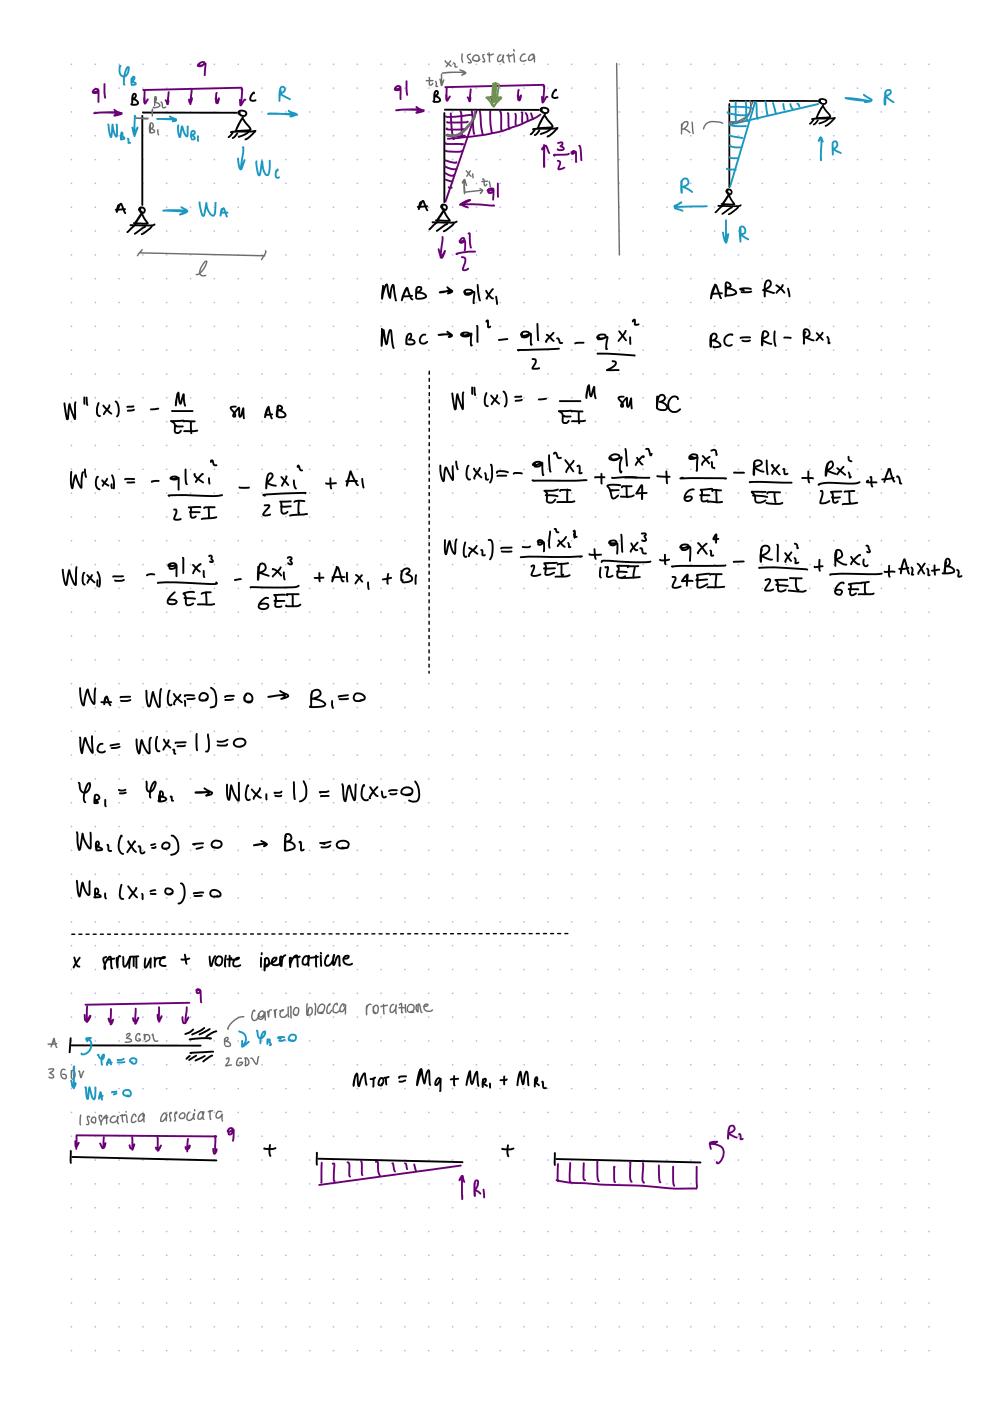 φB q
ql B B2 C R
WB2 B1 WB1
WC
A WA
l
x2 Isostatica
t2
ql B C
3/2 ql
x1 t1
ql
A
ql/2
R
Rl
R
R
R
MAB → qlx1 AB = Rx1
MBC → ql² - qlx2/2 - qx1²/2 BC = Rl - Rx2
W''(x) = - M/EI su AB
W'(x) = - qlx1²/2EI - Rx1²/2EI + A1
W(x) = - qlx1³/6EI - Rx1³/6EI + A1x1 + B1
W''(x) = - M/EI su BC
W'(x2) = - ql²x2/EI + qlx²/EI4 + qx2³/6EI - Rlx2/EI + Rx2²/2EI + A2
W(x2) = -ql²x2²/2EI + qlx2³/12EI + qx2⁴/24EI - Rlx2²/2EI + Rx2³/6EI + A2x2 + B2
WA = W(x1=0) = 0 → B1=0
WC = W(x2=l) = 0
φB1 = φB2 → W(x1=l) = W(x2=0)
WB2 (x2=0) = 0 → B2 = 0
WB1 (x1=0) = 0
x strutture + volte iperstatiche
q
carrello blocca rotazione
A 3GDL B φB=0
φA=0 2GDV
3GDV
WA=0
MTOT = Mq + MR1 + MR2
Isostatica associata
q + + R2
R1